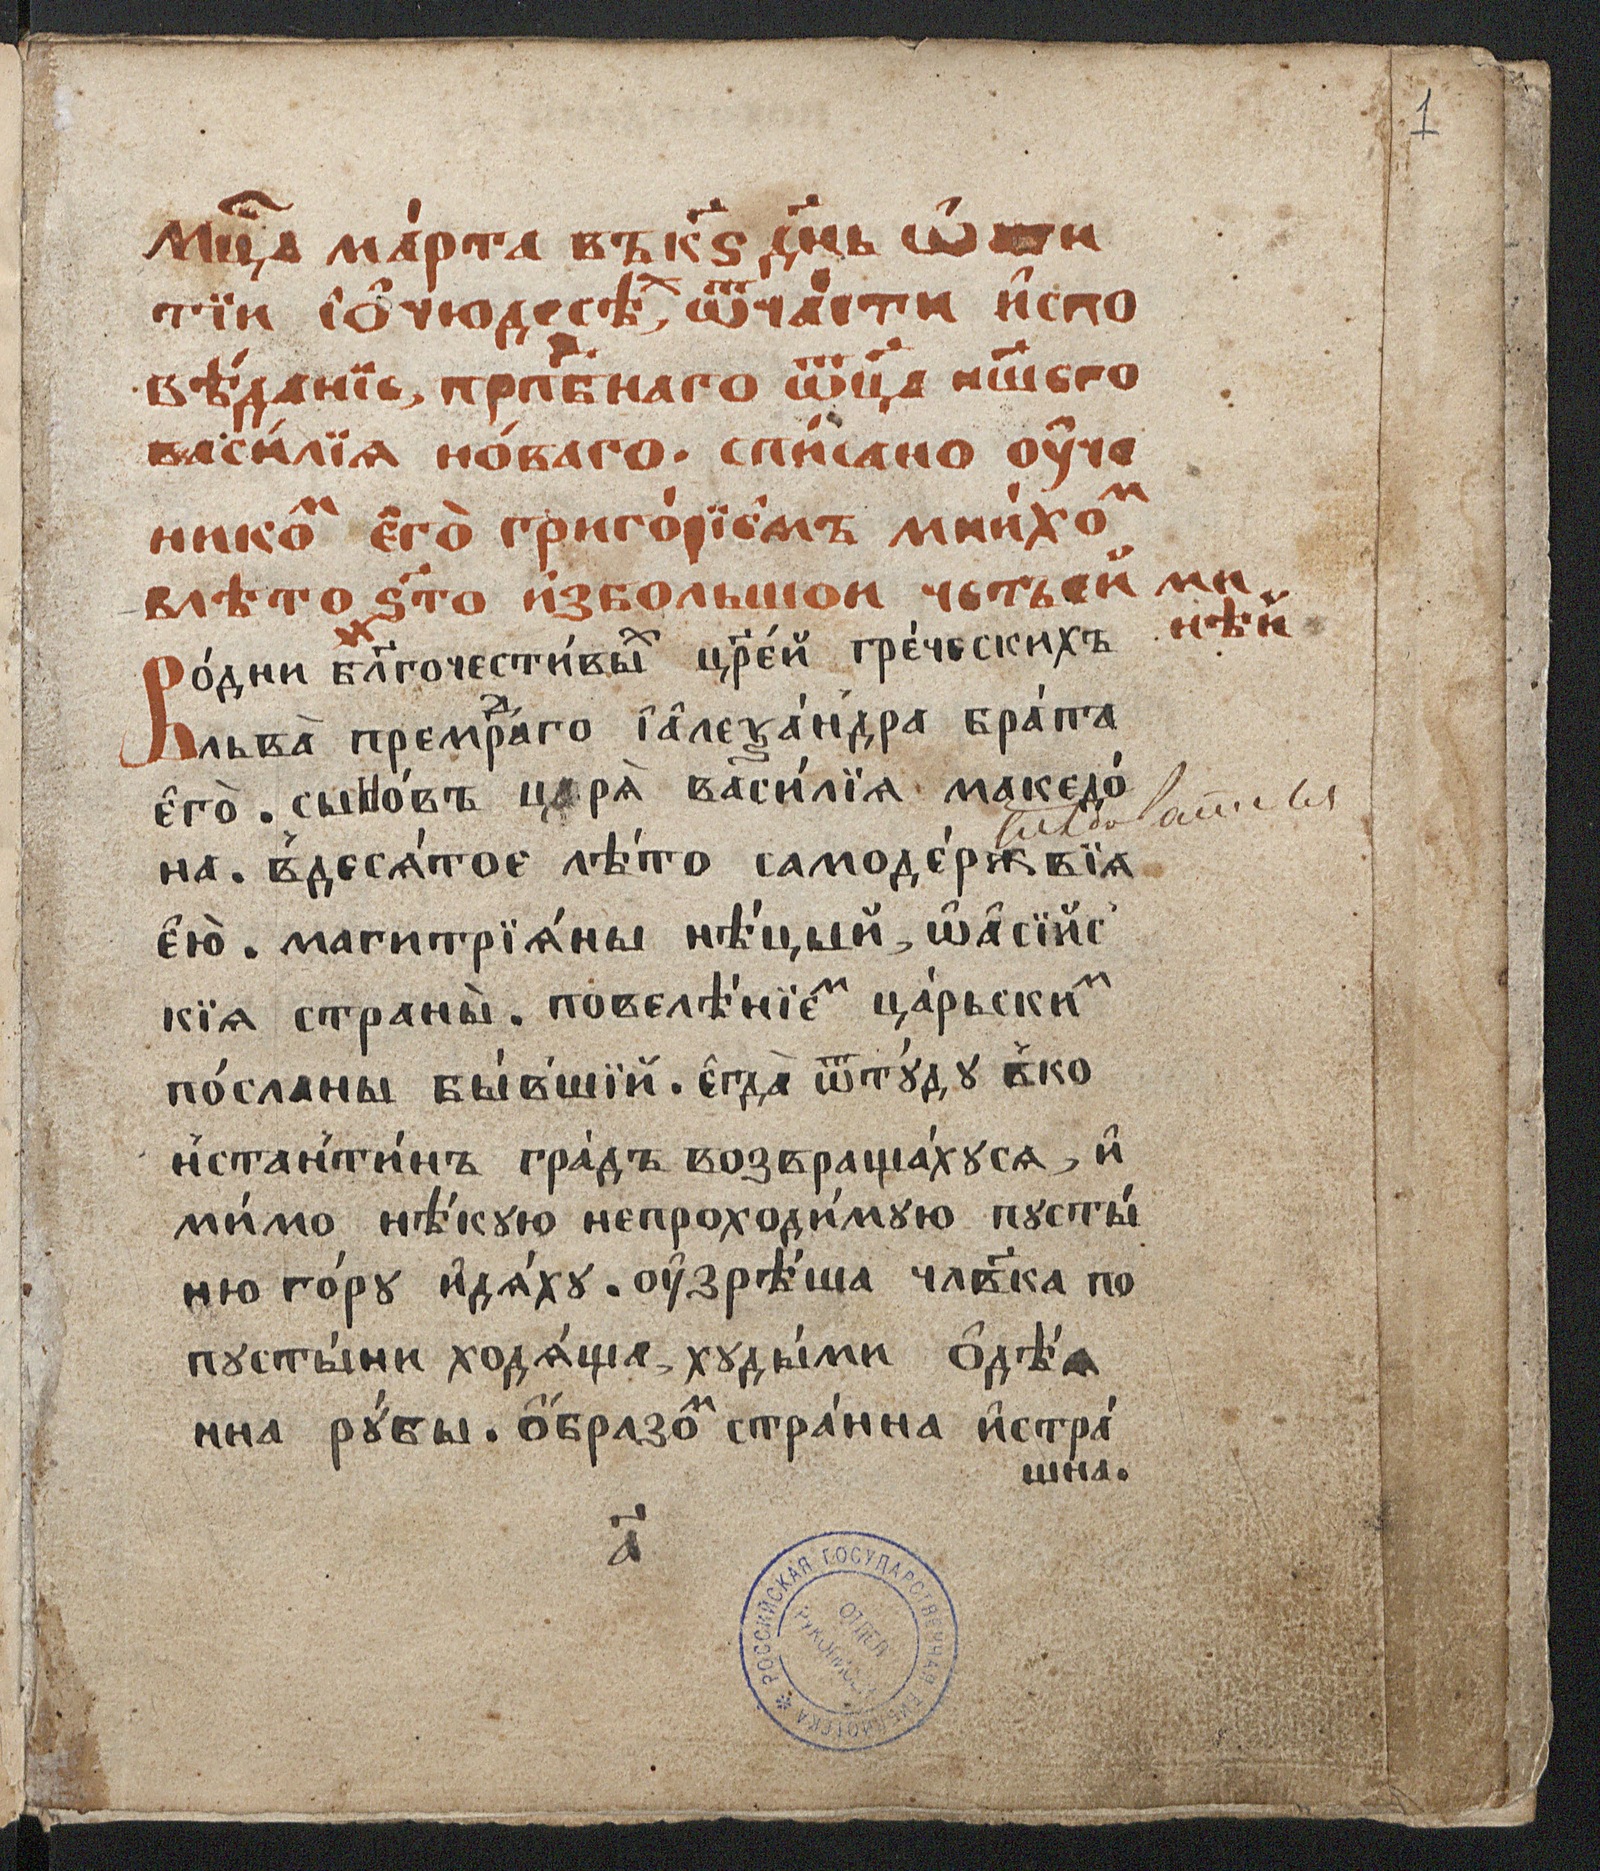 1
Мц҃а ма́рта въ к҃ѕ д҃нь ѽ жи
тїи і҆ ѽ чюдесѣⷯ, ѿча́сти и҆спо
вѣ́данїе, прпⷣбнаго ѿц҃а нш҃его
васи́лїѧ но́ваго. спи́сано оу҆че
никоⷨ є҆гѡ̀ григо́рїемъ мни́хоⷨ
влѣто ѕ҃то и҆зболъшои четьей ми
нѣй
Во́дни блг҃очести́выⷯ цр҃е́й гре́ческихъ
льва̀ премрⷣаго і҆ а҆леѯа́ндра бра́та
є҆го̀. сыно́въ царѧ̀ васи́лїѧ македо́
на. в̾десѧ́тое лѣ́то самоде́ржвїѧ
є҆ю̀. магитрїѧ́ны нѣ́цый, ѿ а҆сїйс
кїѧ страны̀. повелѣ́нїеⷨ ца́рьскиⷨ
по́сланы бы́вшїй. є҆гда̀ ѿту́ду в̾ко
н̾стан̾ти́нъ гра́дъ возвраща́хусѧ, и҆
ми́мо нѣ́кую непроходи́мую пусты́
ню го́ру и҆дѧ́ху. оу҆зрѣ́ша члв҃ка по
пусты́ни ходѧ́ща, худы́ми ѻ҆дѣ́ѧ
нна ру́бы. ѻ҆́бразоⷨ стра́нна и҆стра́
шна.
а҃
РОССИЙСКАЯ ГОСУДАРСТВЕННАЯ БИБЛИОТЕКА *
ОТДЕЛ
РУКОПИСЕЙ